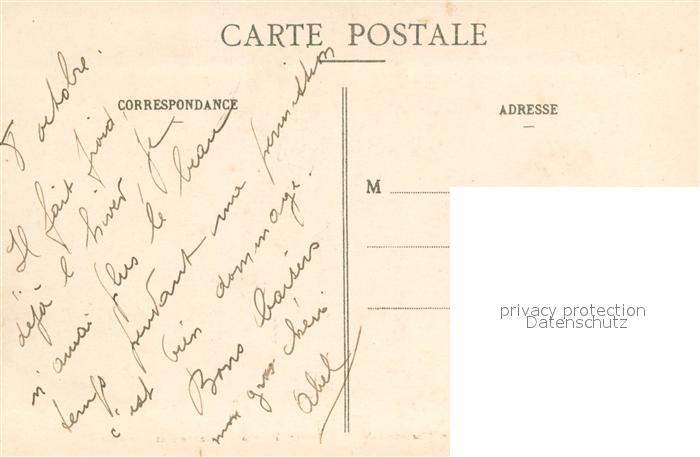 CARTE POSTALE
CORRESPONDANCE
ADRESSE
M
8 octobre.
Il fait froid
déjà l'hiver je
n'aurai plus le beau
temps pendant une permission
c'est bien dommage.
Bons baisers
mon gros chéri
Abel
privacy protection
Datenschutz